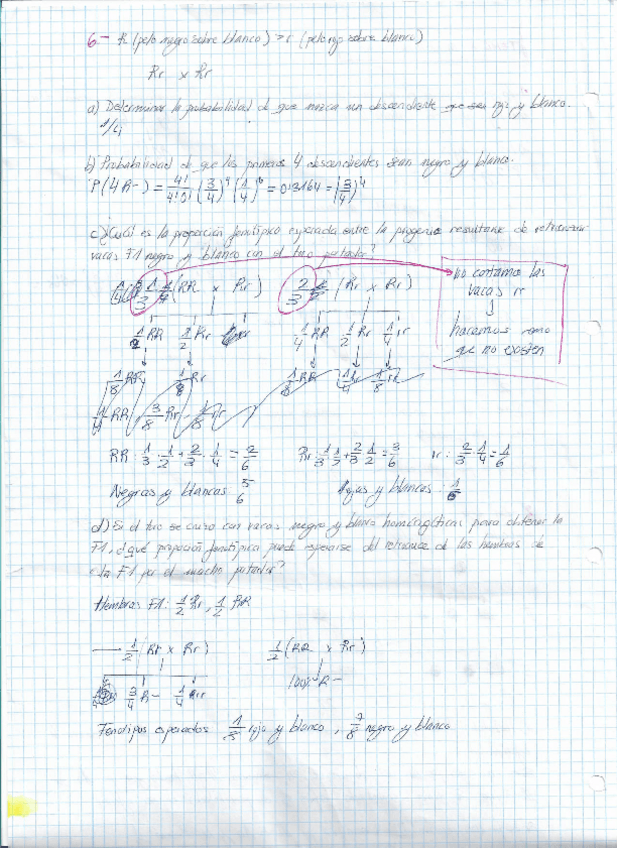 6.- R (pelo negro sobre blanco) > r (pelo rojo sobre blanco)
Rr x Rr
a) Determinar la probabilidad de que nazca un descendiente que sea rojo y blanco.
1/4
b) Probabilidad de que los primeros 4 descendientes sean negro y blanco.
P(4R-) = 4!/4!0! (3/4)^4 (1/4)^0 = 0'3164 = (3/4)^4
c) ¿Cuál es la proporción fenotípica esperada entre la progenie resultante de retrocruzar
vacas F1 negro y blanco con el toro portador?
1/3 (RR x Rr) 2/3 (Rr x Rr)
no contamos las
vacas rr
↓
hacemos como
que no existen
1/2 RR 1/2 Rr 1/4 RR 1/2 Rr 1/4 rr
1/8 Rr 1/8 RR 1/4 1/8 rr
RR 3/8 Rr 1/8 rr
RR: 1/3 · 1/2 + 2/3 · 1/4 = 2/6 Rr: 1/3 · 1/2 + 2/3 · 1/2 = 3/6 rr: 2/3 · 1/4 = 1/6
Negras y blancas 5/6 Rojas y blancos: 1/6
d) Si el toro se cruzó con vacas negro y blanco homócigóticas para obtener la
F1, ¿qué proporción fenotípica puede esperarse del retrocruce de las hembras de
la F1 por el macho portador?
Hembras F1: 1/2 Rr, 1/2 RR
1/2 (Rr x Rr) 1/2 (RR x Rr)
3/4 R- 1/4 rr 100% R-
Fenotipos esperados 1/8 rojo y blanco, 7/8 negro y blanco